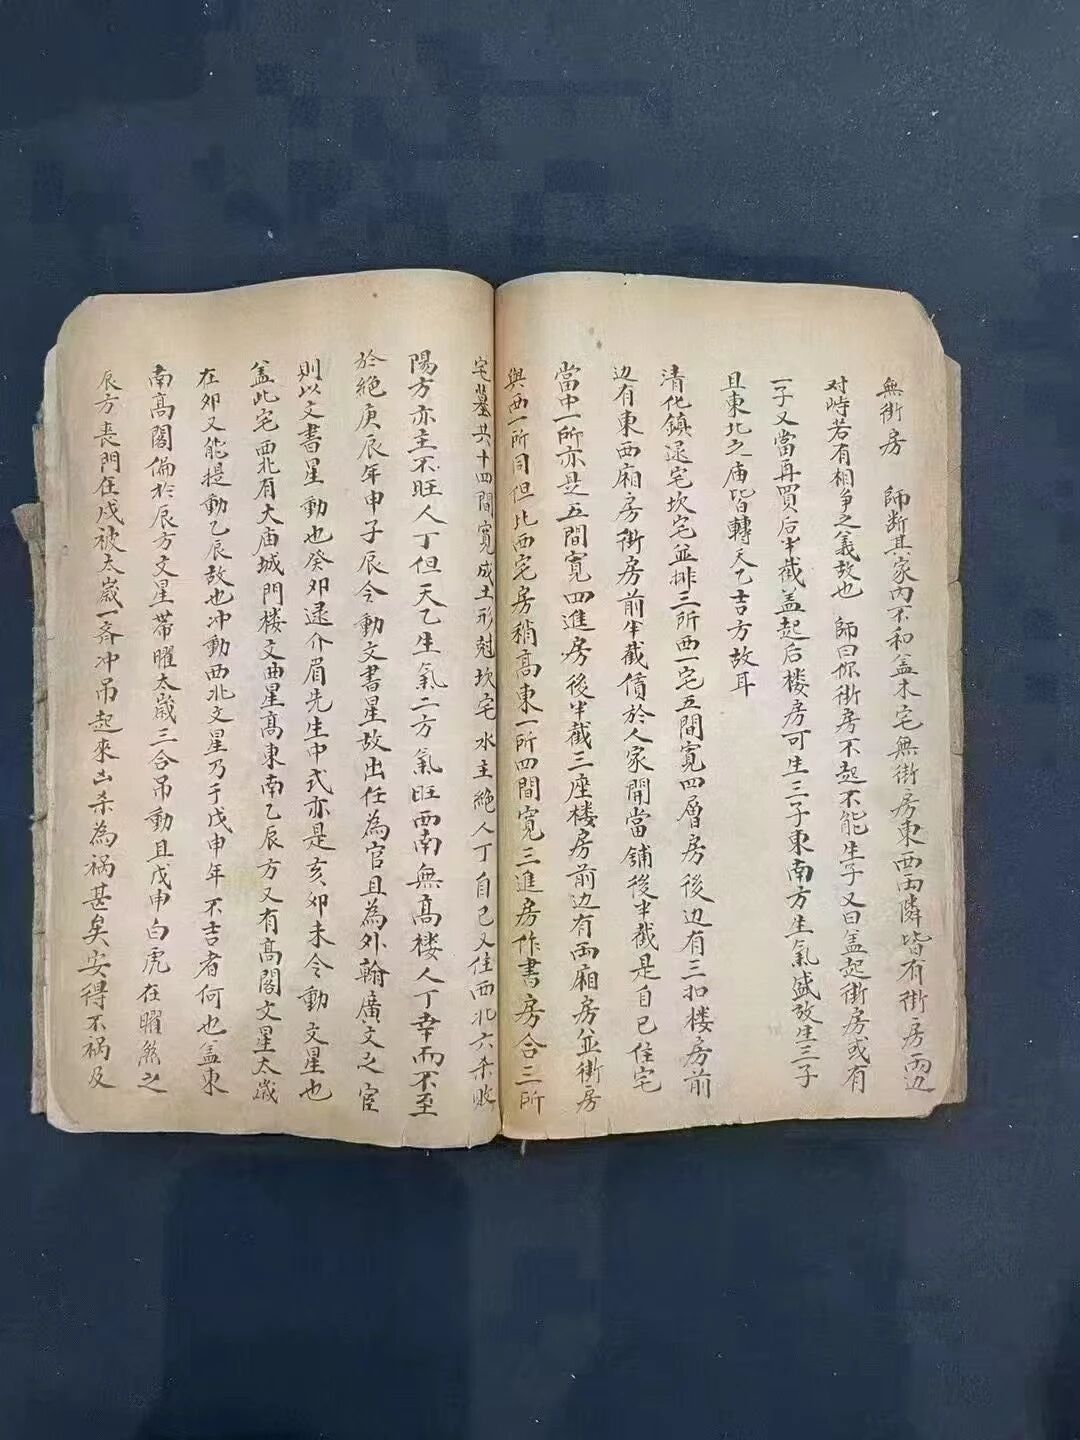 無街房 師断其家内不和盖木宅無街房東西両隣皆有街房両边
对時若有相爭之義故也 師曰你街房不起不能生子又曰盖起街房或有
一子又當再買后半截盖起后楼房可生三子東南方生氣盛故生三子
且東北之庙皆轉天乙吉方故耳
清化鎮逯宅坎宅並排三所西一宅五間寛四層房後边有三扣楼房前
边有東西廂房街房前半截債於人家開當鋪後半截是自己住宅
當中一所亦是五間寛四進房後半截三座楼房前边有両廂房並街房
與西一所同但比西宅房稍高東一所四間寛三進房作書房合三所
宅基共十四間寛成土形尅坎宅水主絶人丁自己又住西北六杀敗
陽方亦主不旺人丁但天乙生氣二方氣旺西南無高楼人丁幸而不至
於絶庚辰年申子辰令動文書星故出任為官且為外翰廣文之宦
則以文書星動也癸卯逯介眉先生中式亦是亥卯未令動文星也
盖此宅西北有大庙城門楼文曲星高東南乙辰方又有高閣文星太歲
在卯又能提動乙辰故也冲動西北文星乃于戊申年不吉者何也盖東
南高閣偏於辰方文星帶曜太歲三合吊動且戊申白虎在曜煞之
辰方喪門在戌被太嵗一齐冲吊起來凶杀為禍甚矣安得不禍及